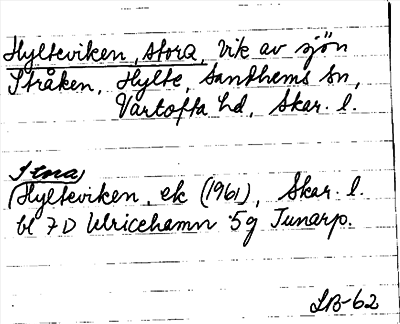 Hylteviken, Stora, Vik av sjön
Stråken, Hylte, Sandhems Sn,
Vartofta hd, Skar. l.
Stora
(Hylteviken, ek (1961), Skar. l.
bl 7D Ulricehamn 5g Tunarp.
LB-62